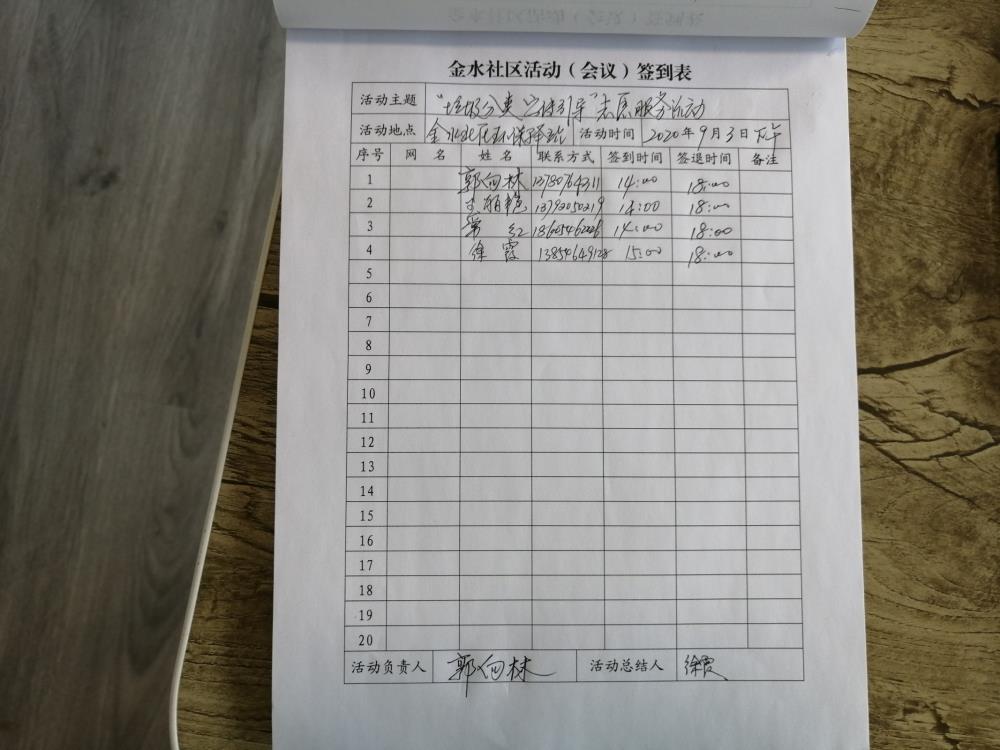 金水社区活动（会议）签到表
活动主题 "垃圾分类 引导"志愿服务活动
活动地点 金水社区环保 站 活动时间 2020年9月3日下午
序号 网 名 姓 名 联系方式 签到时间 签退时间 备注
1 郭向林 13780764311 14:00 18:00
2 丽艳 13792050219 14:00 18:00
3 红 18605462226 14:00 18:00
4 徐霞 13854649128 15:00 18:00
5
6
7
8
9
10
11
12
13
14
15
16
17
18
19
20
活动负责人 郭向林 活动总结人 徐霞